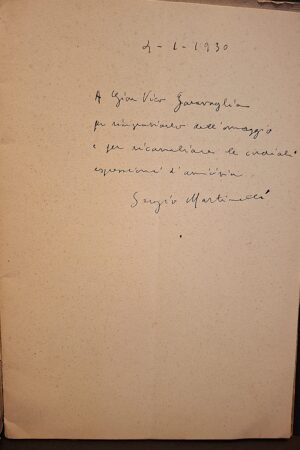 4-1-1930
A Gian Vico Garavaglia
per ringraziarlo dell'omaggio
e per ricambiare le cordiali
espressioni d'amicizia.
Sergio Martinelli